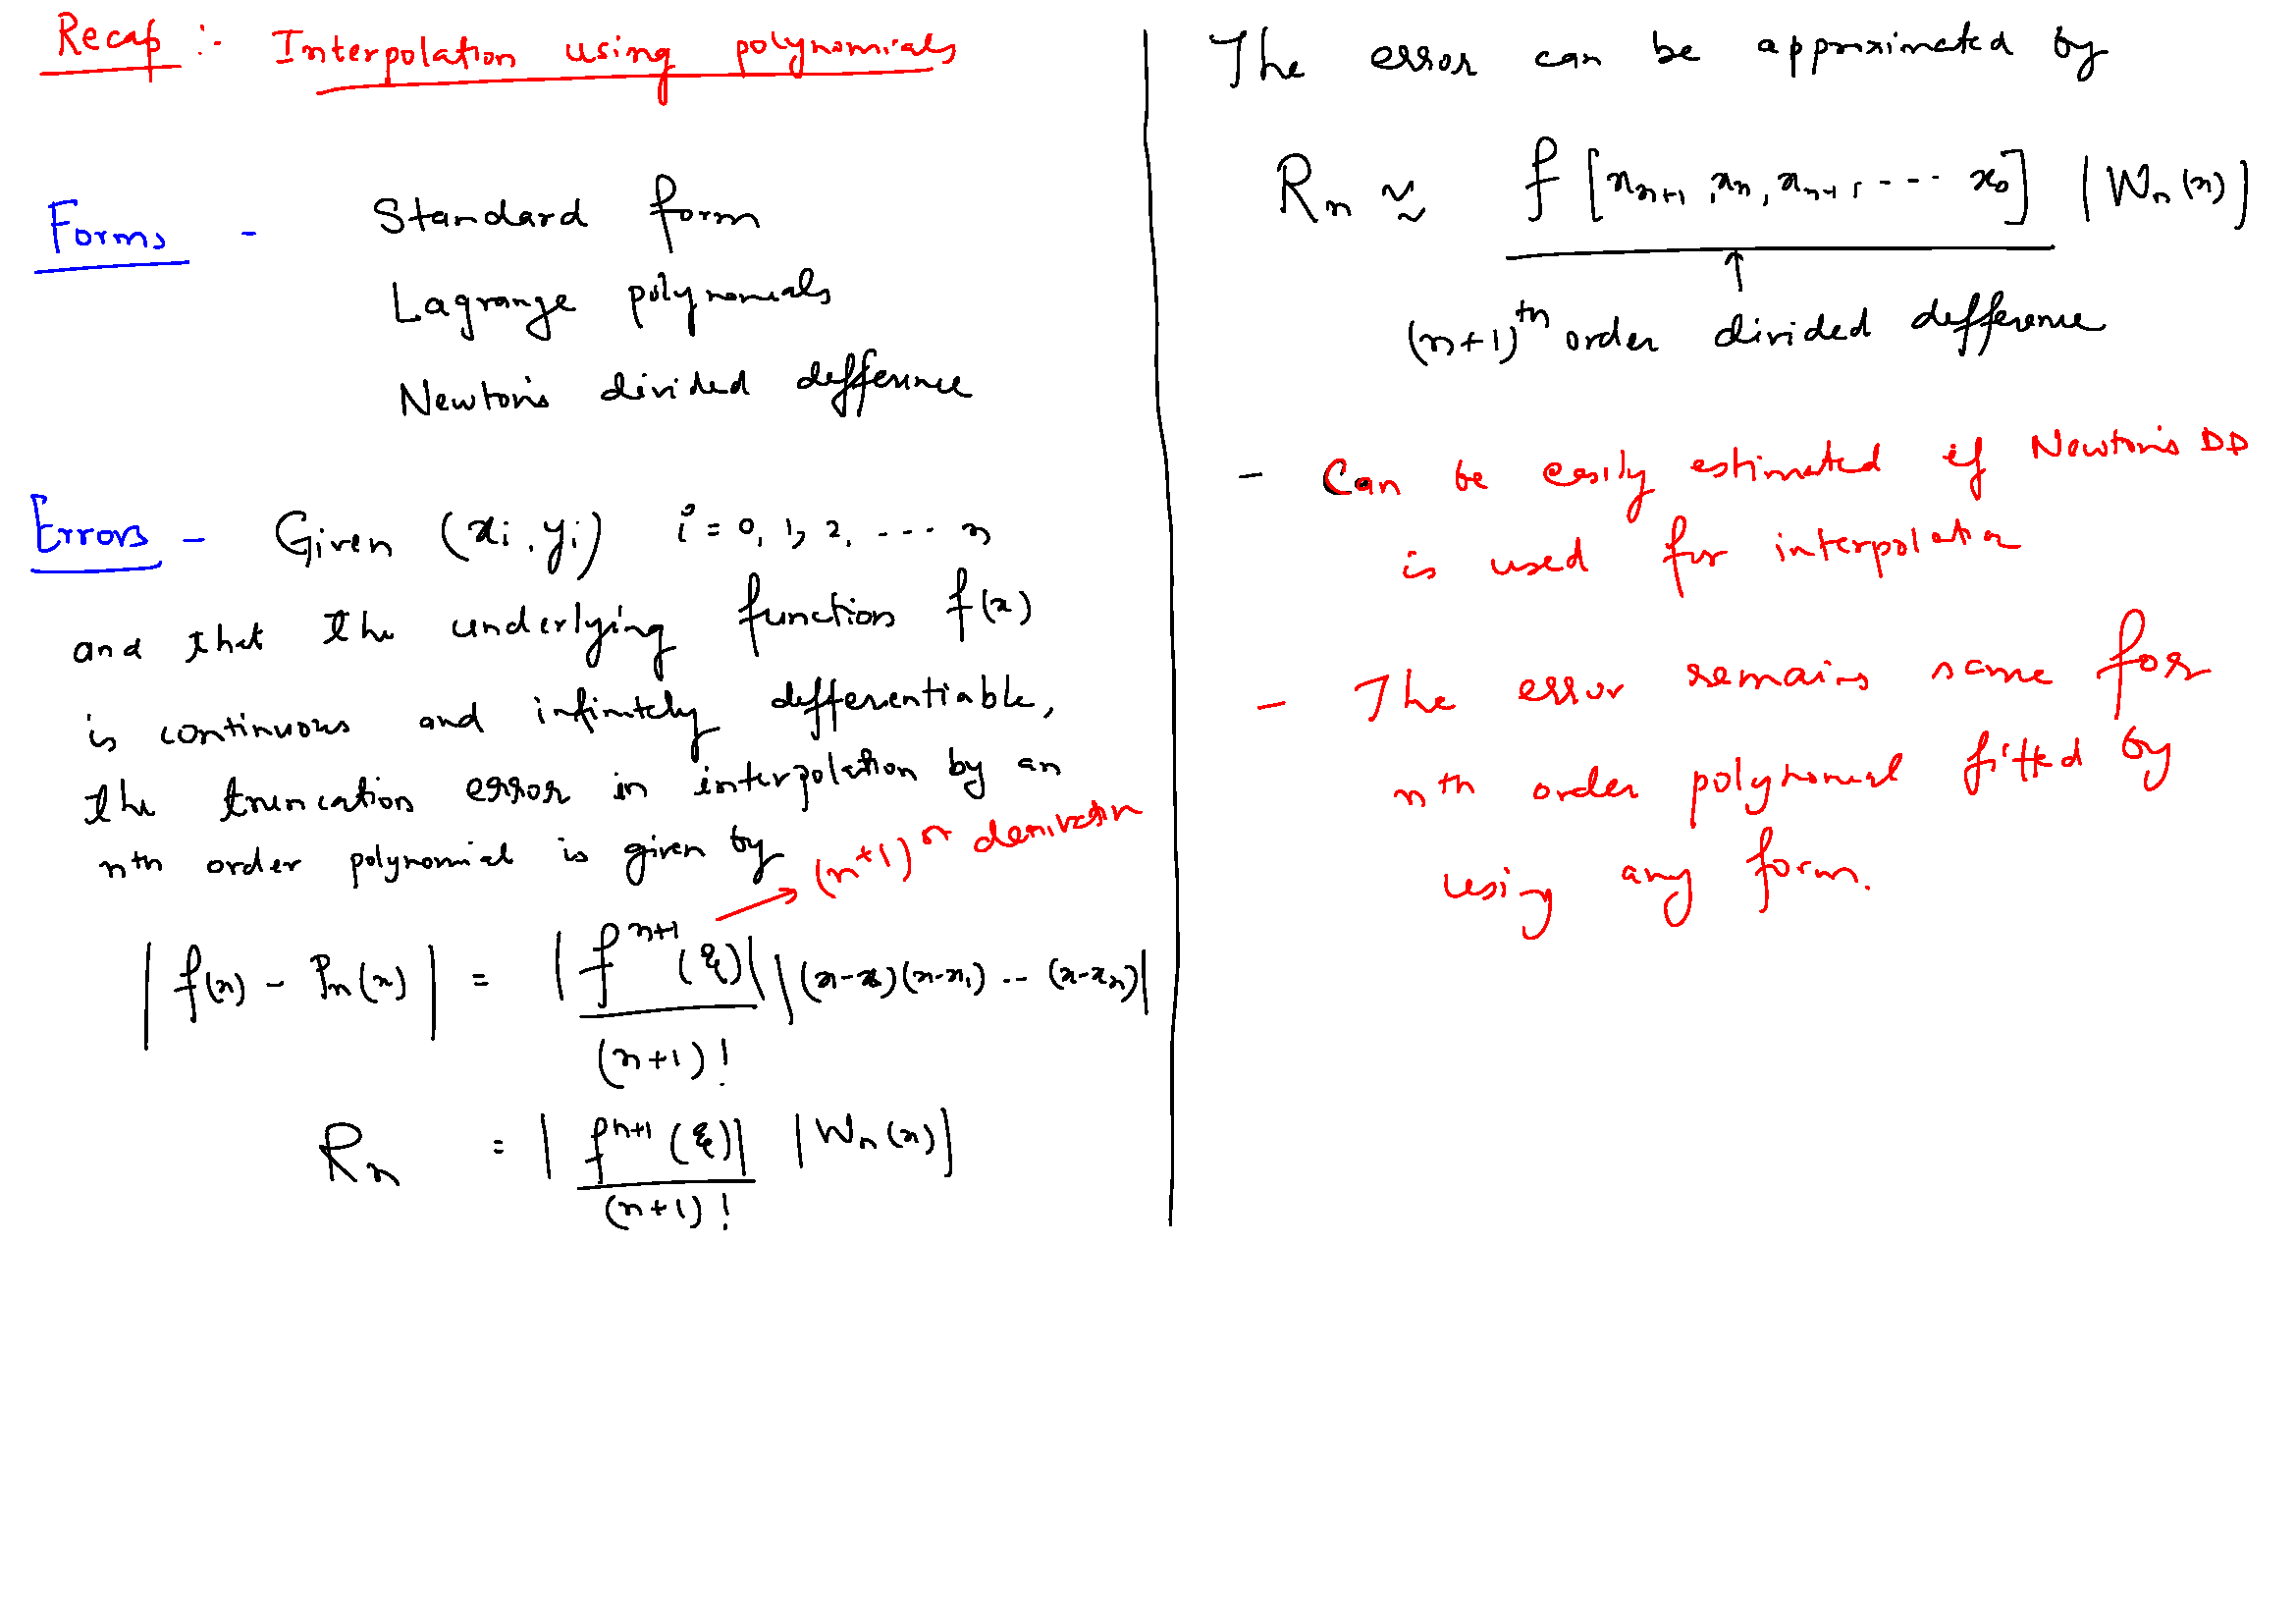 Recap :- Interpolation using polynomials
Forms - Standard form
Lagrange polynomials
Newton's divided difference
Errors - Given (xi, yi) i = 0, 1, 2, ---- n
and that the underlying function f(x)
is continuous and infinitely differentiable,
the truncation error in interpolation by an
nth order polynomial is given by
(n+1)th derivative
|f(x) - Pn(x)| = |f^{n+1}(ξ)| / (n+1)! |(x-x0)(x-x1) -- (x-xn)|
Rn = |f^{n+1}(ξ)| / (n+1)! |Wn(x)|
The error can be approximated by
Rn ≈ f[xn+1, xn, xn-1, ---- x0] |Wn(x)|
↑
(n+1)th order divided difference
- Can be easily estimated if Newton's DD
is used for interpolation
- The error remains same for
nth order polynomial fitted by
using any form.